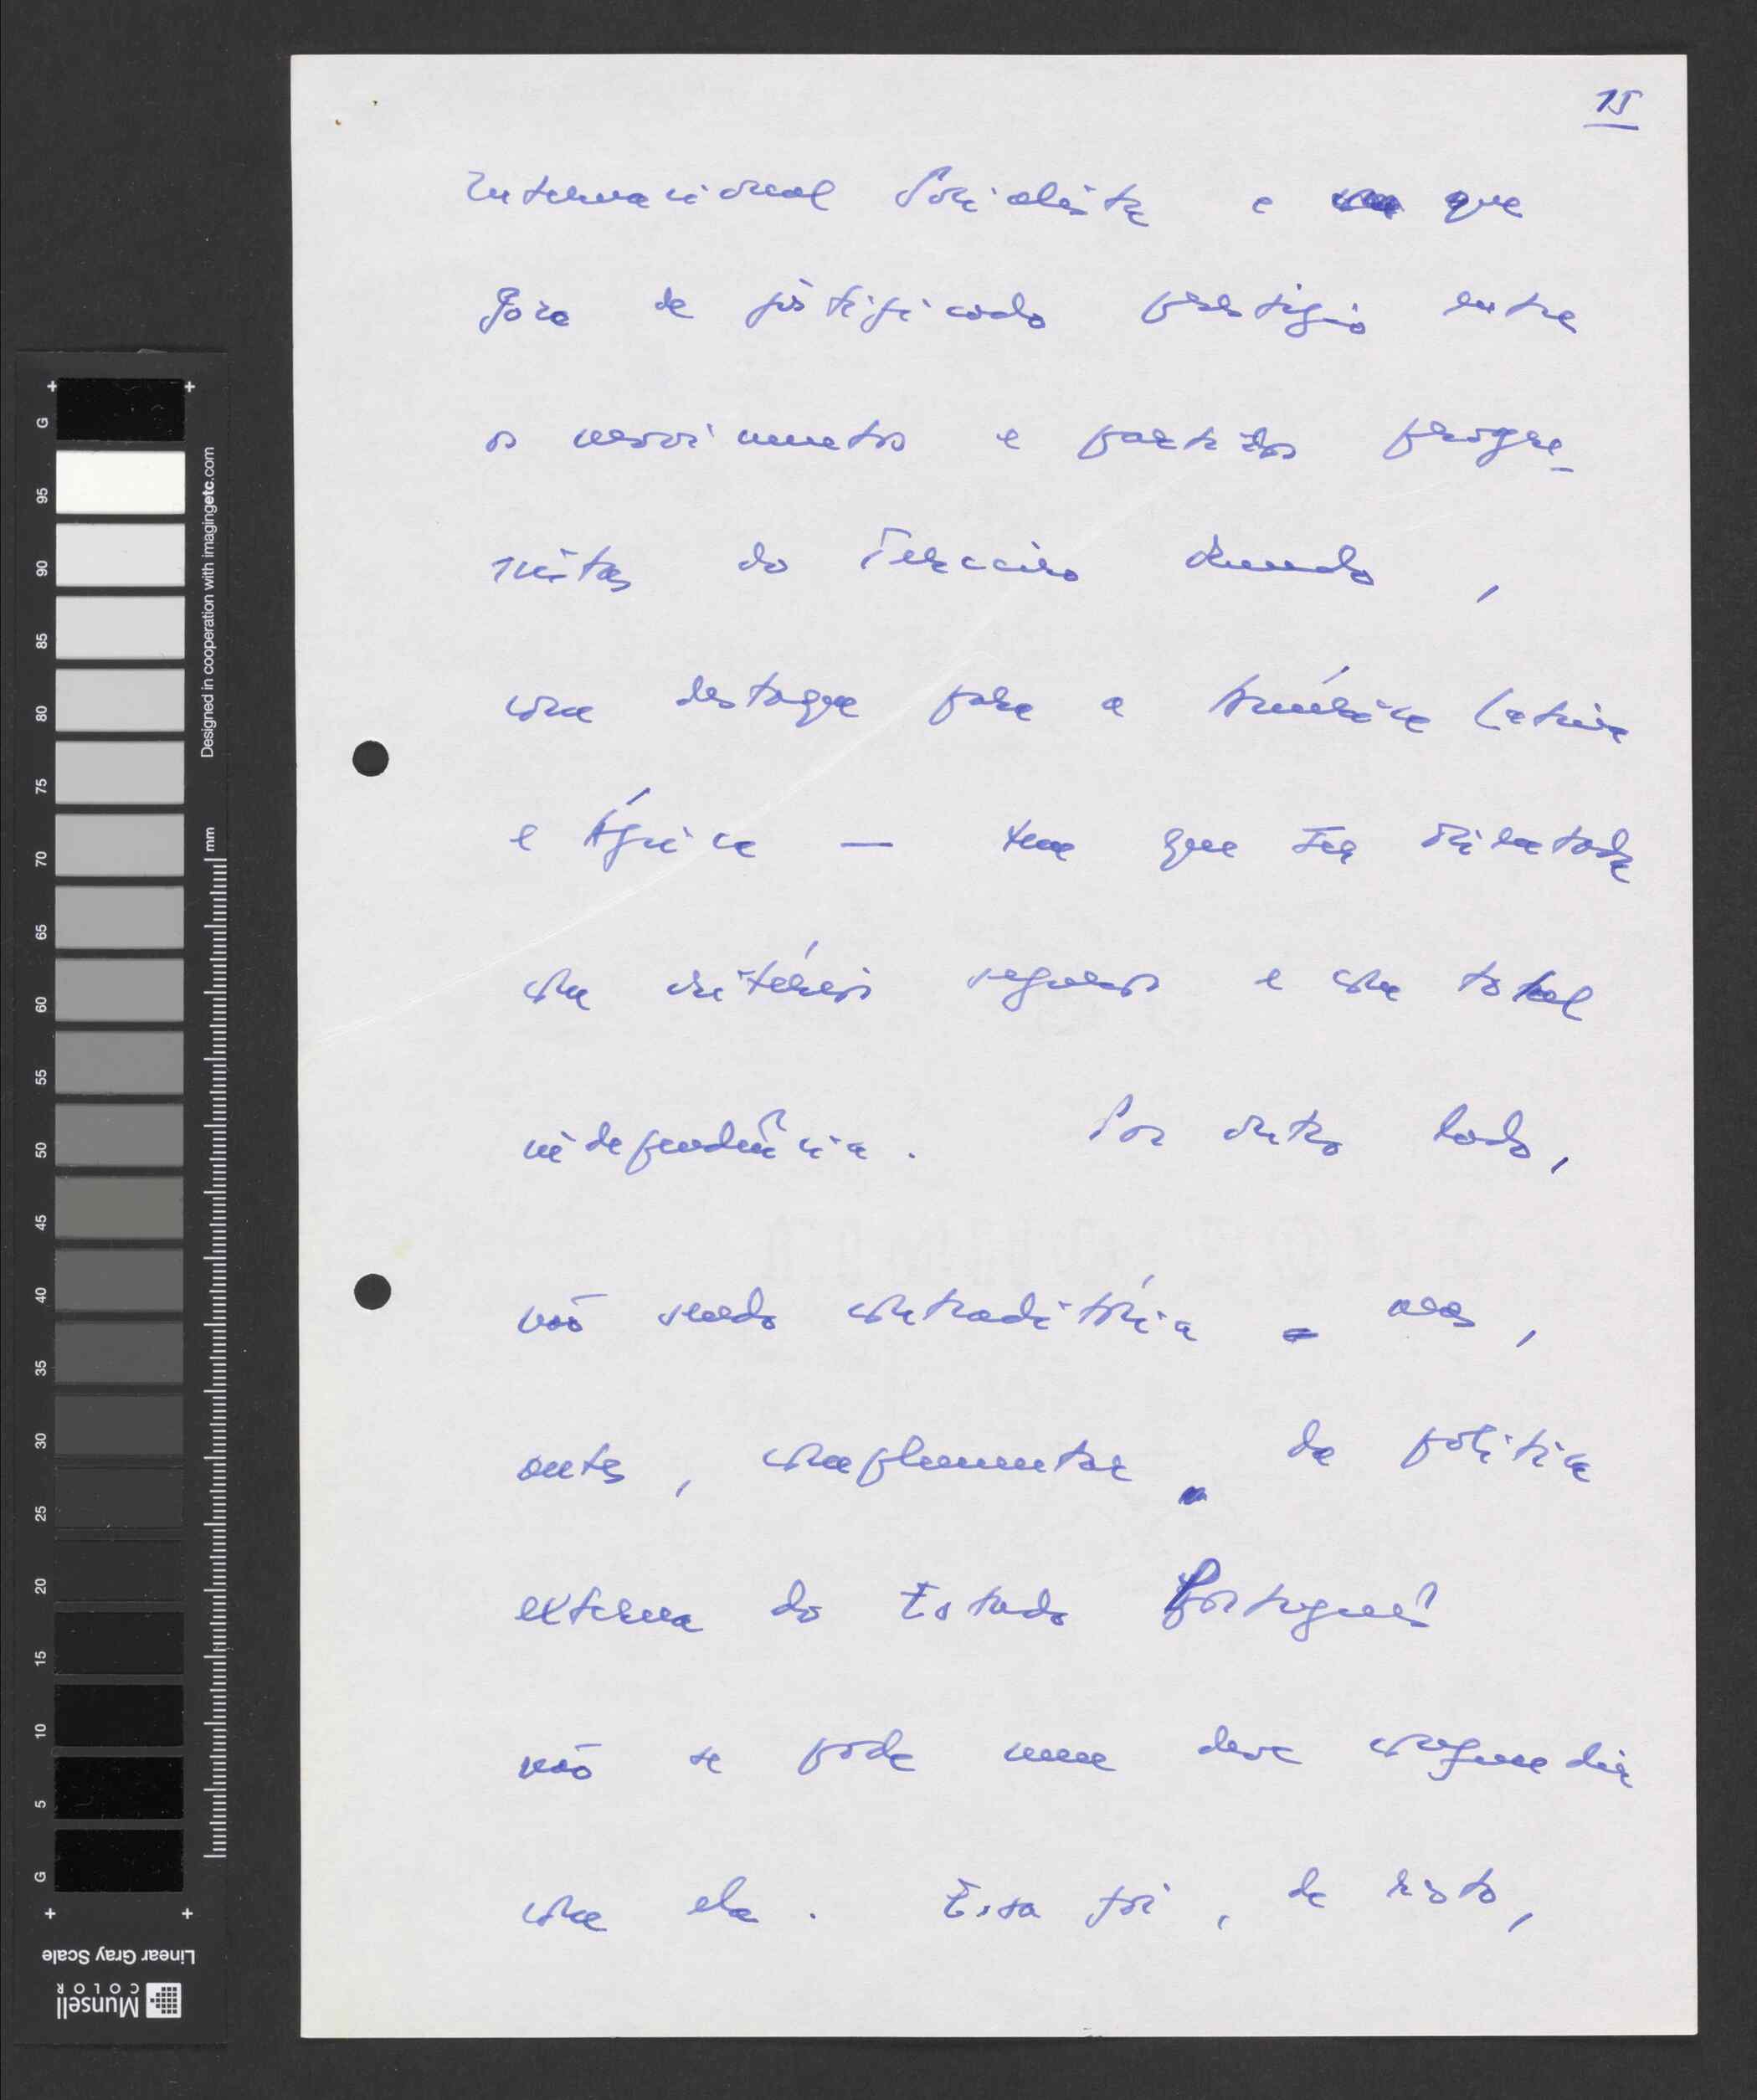 15
Internacional Socialista e que
goza de justificado prestígio entre
os movimentos e partidos progre-
ssistas do Terceiro Mundo,
com destaque para a América Latina
e África — tem que ser orientada
com critérios seguros e com total
independência. Por outro lado,
não sendo contraditória mas,
antes, complementar da política
externa do Estado Português
não se pode nem deve confundir
com ela. Essa foi, de resto,
G
95
90
85
80
75
70
65
60
55
50
45
40
35
30
25
20
15
10
5
G
Designed in cooperation with imagingetc.com
mm
Linear Gray Scale
Munsell
COLOR